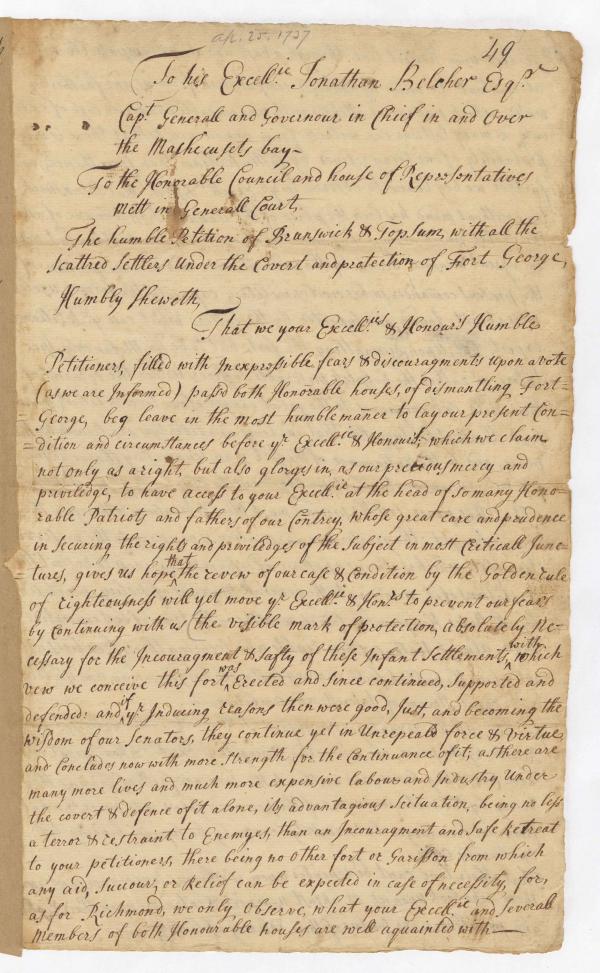 ap. 25. 1737
49
To his Excell.ie Jonathan Belcher Esqr.
Capt. Generall and Governour in Chief in and Over
the Mashecusets bay-
To the Honorable Council and house of Representatives
Mett in Generall Court,
The humble Petition of Brunswick & Topsum, with all the
Scattred Settlers Under the Covert and protection of Fort George,
Humbly Sheweth,
That we your Excell.ies & Honours Humble
Petitioners, filled with Inexpressible fears & discouragments Upon a vote
(as we are Informed) pass'd both Honorable houses, of dismantling Fort-
George, beg leave in the most humble maner to lay our present Con=
=dition and circumstances before yr. Excell.ie & Honours, which we claim
not only as a right, but also glorges in, as our precious mercy and
priviledge, to have access to your Excell.ie at the head of so many Hono=
rable Patriots and fathers of our Contrey, whose great care and prudence
in securing the rights and priviledges of the Subject in most Criticall Junc=
=tures, gives us hope that the revew of our case & Condition by the Golden rule
of righteousness will yet move yr. Excell.ie & Honrs to prevent our fears
by Continuing with us (the visible mark of protection, absolutely Ne=
cessary for the Incouragment & safty of these Infant Settlements, with which
vew we conceive this fort was Erected and since continued, Supported and
defended: and if yr. Inducing reasons then were good, Just, and becoming the
wisdom of our Senators, they continue yet in Unrepeald force & virtue
and Concludes now with more strength for the Continuance of it, as there are
many more lives and much more expensive labour and Industry Under
the covert & defence of it alone, its advantagious Scituation, being no less
a terror & restraint to Enemyes, than an Incouragment and Safe Retreat
to your petitioners, there being no Other fort or Garisson from which
any aid, Succour, or Relief can be expected in case of necessity, for,
as for Richmond, we only Observe, what your Excell.ie and severall
Members of both Honourable houses are well aquainted with-